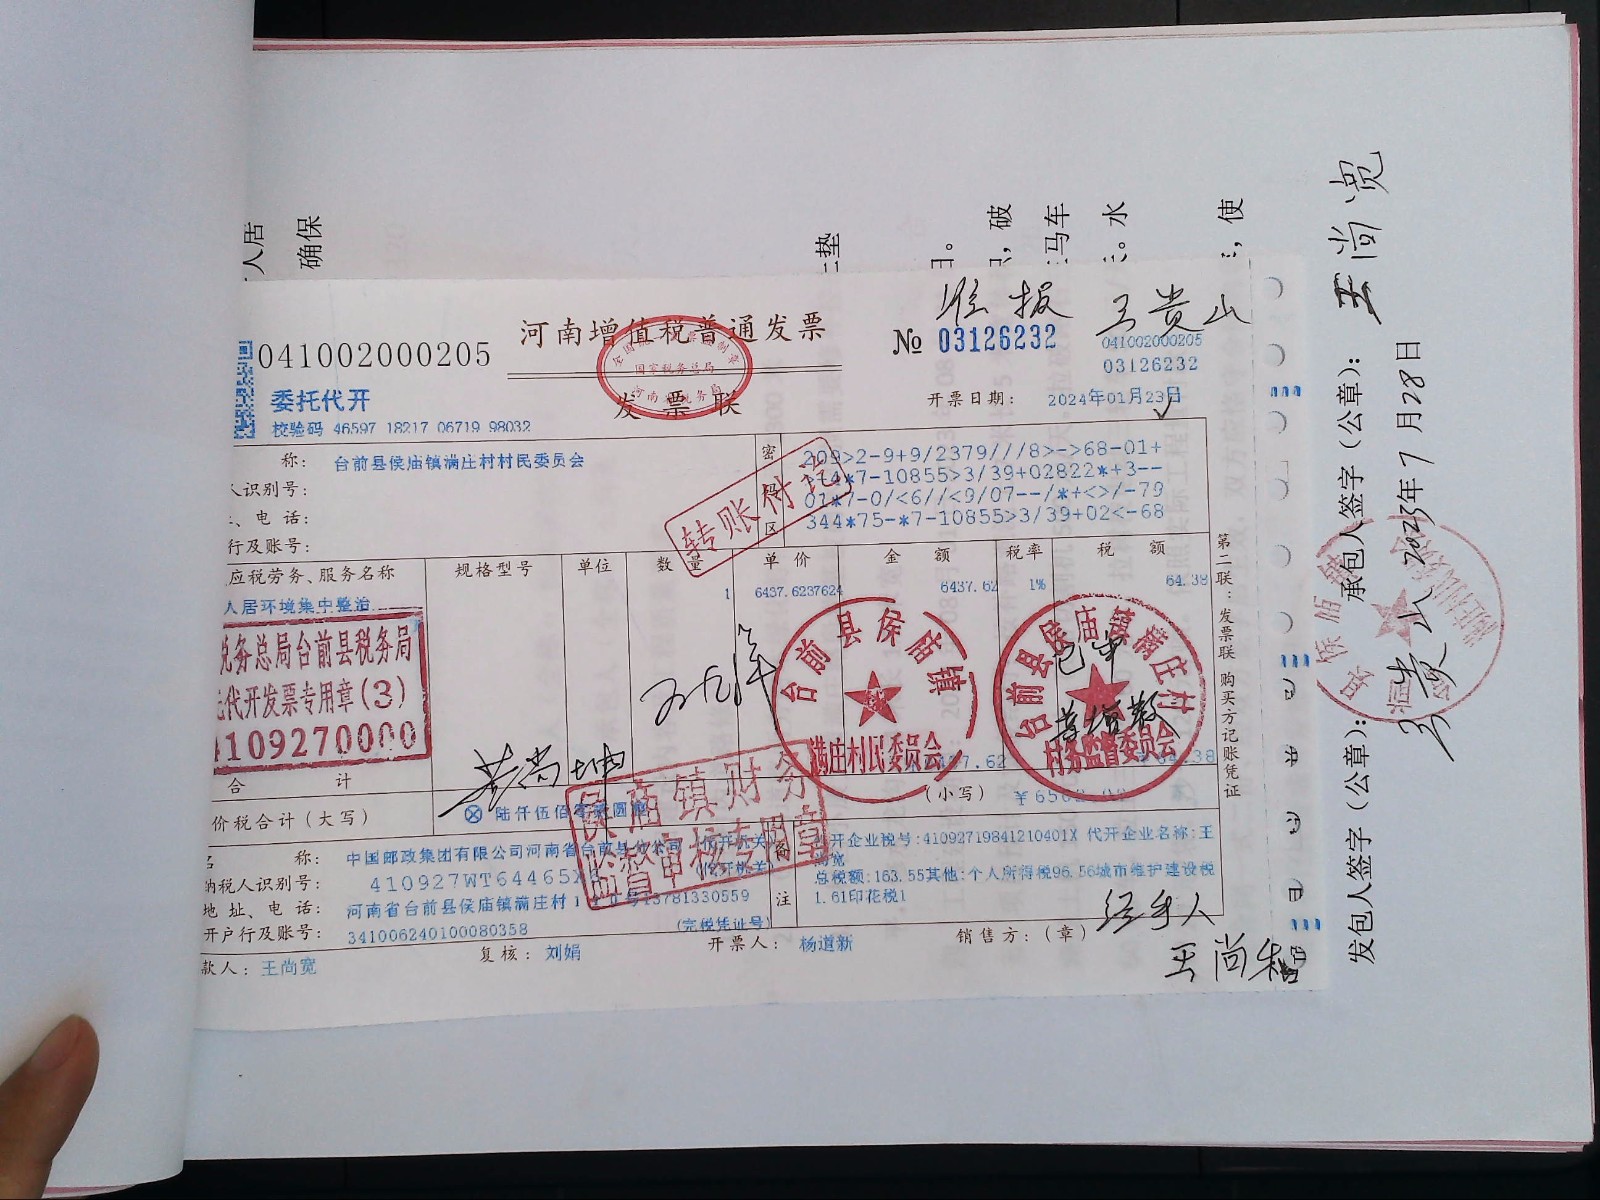 人居
确保
垫
，破
马车
。水
，使
准报 王贵山
041002000205
河南增值税普通发票
№ 03126232
041002000205
03126232
国家税务总局
发票联
委托代开
校验码 46597 18217 06719 98032
开票日期： 2024年01月23日
称： 台前县侯庙镇满庄村村民委员会
人识别号：
、电 话：
行及账号：
密码区
209>2-9+9/2379///8>->68-01+
>14*7-10855>3/39+02822*+3--
01*7-0/<6//<9/07--/*+<>/-79
344*75-*7-10855>3/39+02<-68
转账付讫
应税劳务、服务名称 规格型号 单位 数量 单价 金额 税率 税额
人居环境集中整治 1 6437.6237624 6437.62 1% 64.38
税务总局台前县税务局
代开发票专用章(3)
4109270000
台前县侯庙镇
满庄村民委员会
台前县侯庙镇满庄村
村务监督委员会
合 计
价税合计（大写） 陆仟伍佰 （小写）
侯庙镇财务
监督审核专用章
第二联：发票联 购买方记账凭证
名 称： 中国邮政集团有限公司河南省台前县分公司 (代开机关)
纳税人识别号： 410927WT64465
地址、电 话： 河南省台前县侯庙镇满庄村 13781330559
开户行及账号： 341006240100080358 (完税凭证号)
备注
代开企业税号:41092719841210401X 代开企业名称:王
尚宽
总税额:163.55其他:个人所得税96.56城市维护建设税
1.61印花税1
款人： 王尚宽 复核： 刘娟 开票人： 杨道新 销售方：（章）
经手人
承包人签字（公章）： 王尚宽
2023年7月28日
发包人签字（公章）： 王贵山